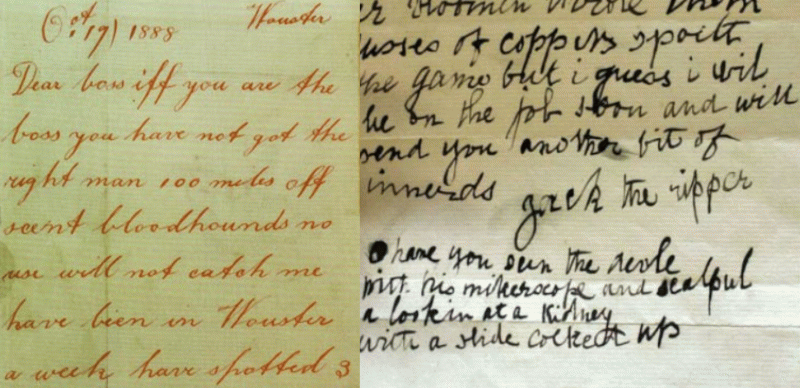 Oct 19/ 1888 Wouster
Dear boss iff you are the
boss you have not got the
right man 100 miles off
scent bloodhounds no
use will not catch me
have bien in Wouster
a week have spotted 3
usses of coppers spoilt
the game but i guess i wil
be on the job soon and will
send you another bit of
innerds
jack the ripper
O have you seen the devle
with his mikerscope and scalpul
a lookin at a Kidney
with a slide cocked up